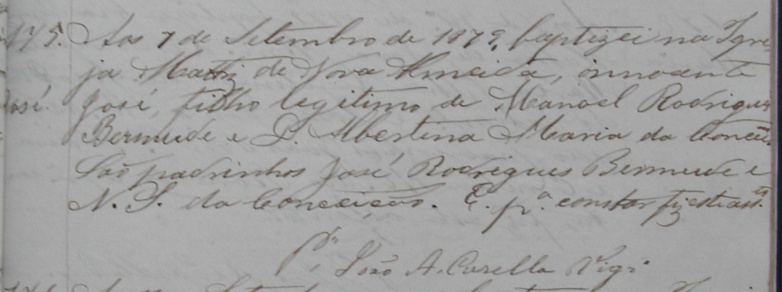 175. Aos 7 de Setembro de 1879, baptizei na Igre
ja Matriz de Nova Almeida, innocente
José. José, filho legitimo de Manoel Rodrigues
Bermude e D. Albertina Maria da Concei
São padrinhos José Rodrigues Bermude e
N. S. da Conceição. E p.ª constar fiz este ass.to
P.e João A. Casella Vigr.o